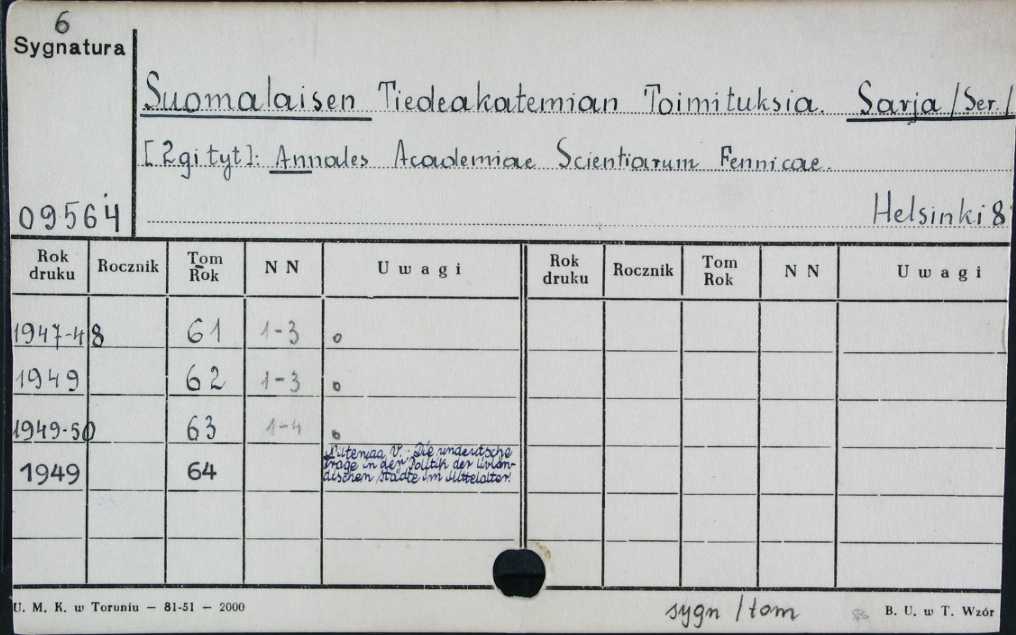 6
Sygnatura
Suomalaisen Tiedeakatemian Toimituksia. Sarja /Ser./
[2gi tyt]: Annales Academiae Scientiarum Fennicae.
09564 Helsinki 8
Rok druku Rocznik Tom Rok N N Uwagi Rok druku Rocznik Tom Rok N N Uwagi
1947-48 61 1-3 o
1949 62 1-3 o
1949-50 63 1-4 o
1949 64 Niitemaa V.: Die undeutsche
Frage in der Politik der livlän-
dischen Städte im Mittelalter.
U. M. K. w Toruniu — 81-51 — 2000 sygn /tom B. U. w T. Wzór